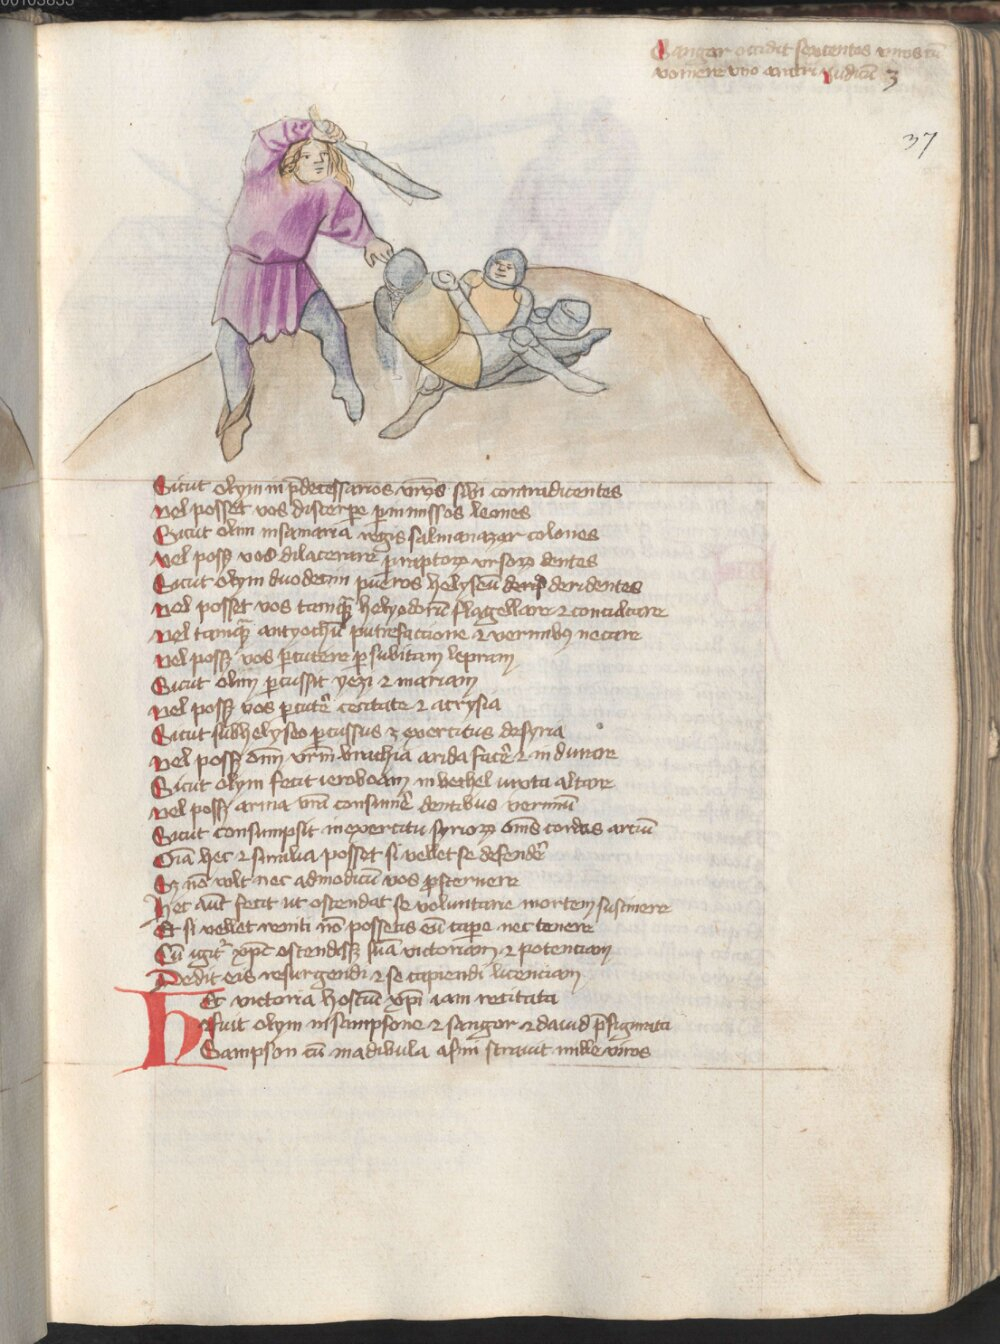 00103855
Sangor occidit sexcentos viros cū
vomere vno aratri Judicū 3
37
Sicut olym in p̄decessarios vr̄os sibi contradicentes
vel posset vos discerpe p̱ inmissos leones
Sicut olim in samaria regis salmanazar colones
vel possꝫ vos dilacerare p̱ raptoꝝ vrsoꝝ dentes
Sicut olym duodecim pueros helyseū deridentes
vel posset vos tamqꝫ helyodorū flagellare ⁊ conculcare
vel tamqꝫ antyochū putrefactione ⁊ vermibꝰ necare
vel possꝫ vos p̱cutere p̱ subitam lepram
Sicut olim p̱cussit yezi ⁊ mariam
vel possꝫ vos p̱cutē cecitate ⁊ acrysia
Sicut sub helyseo p̱cussus ē exercitus de syria
vel possꝫ om̄ vr̄m brachia arida facē ⁊ indurare
Sicut olym fecit ieroboam in bethel iuxta altare
vel possꝫ arma vr̄a consumē dentibus vermiū
Sicut consumpsit in exercitu syrioꝝ om̄s cordas arcuū
Oīa hec ⁊ similia posset si vellet se defendē
Sꝫ nō vlt nec ad modicū vos p̱sternere
hec aūt fecit ut ostendat se voluntarie mortem sustinere
Et si vellet reniti nō possetis eū cape nec tenere
Cū igit̉ xp̄c ostendissꝫ suā victoriam ⁊ potentiam
Dedit eis resurgendi ⁊ se capiendi licenciam
Hec victoria hostiū xp̄i iam recitata
fuit olym in sampsone ⁊ sangor ⁊ dauid p̄figurata
Sampson cū madibula asini strauit mille viros